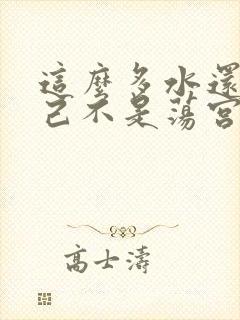 這麼多水還
己不是蕩宮
高士濤